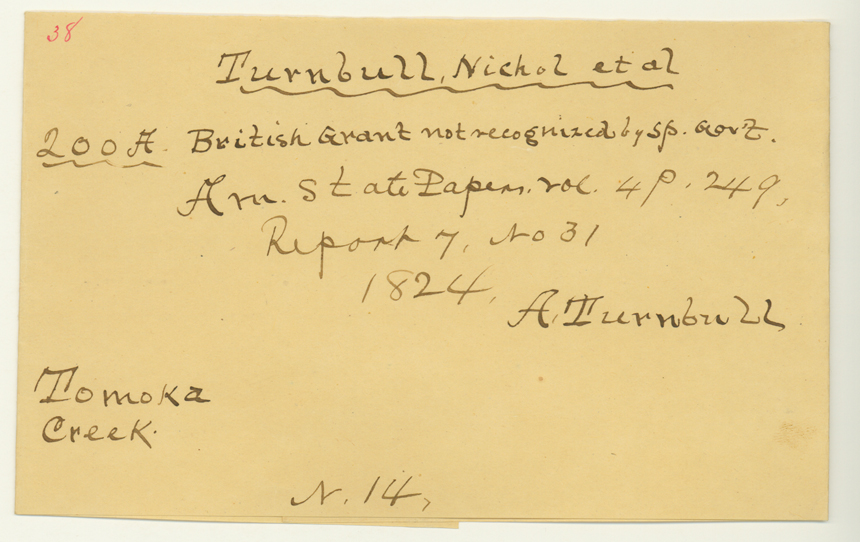 38
Turnbull, Nichol et al
200 A. British Grant not recognized by Sp. Gov't.
Am. State Papers, vol. 4 P. 249,
Report 7, No 31
1824,
A. Turnbull
Tomoka
Creek.
N. 14,